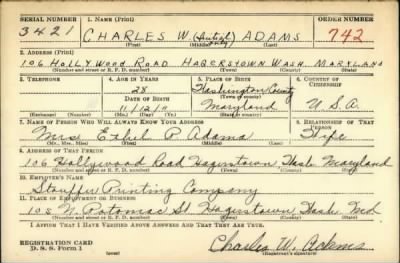 SERIAL NUMBER 1. NAME (Print) ORDER NUMBER
3421 CHARLES W (Initial only) ADAMS 742
(First) (Middle) (Last)
2. ADDRESS (Print)
106 HOLLYWOOD ROAD HAGERSTOWN WASH. MARYLAND
(Number and street or R. F. D. number) (Town) (County) (State)
3. TELEPHONE 4. AGE IN YEARS 5. PLACE OF BIRTH 6. COUNTRY OF CITIZENSHIP
28 Washington County
DATE OF BIRTH (Town or county)
11/2/11 Maryland U.S.A.
(Exchange) (No.) (Mo.) (Day) (Yr.) (State or country)
7. NAME OF PERSON WHO WILL ALWAYS KNOW YOUR ADDRESS 8. RELATIONSHIP OF THAT PERSON
Mrs Ethel P Adams Wife
(Mr., Mrs., Miss) (First) (Middle) (Last)
9. ADDRESS OF THAT PERSON
106 Hollywood Road Hagerstown, Wash Maryland
(Number and street or R. F. D. number) (Town) (County) (State)
10. EMPLOYER'S NAME
Stouffer Printing Company
11. PLACE OF EMPLOYMENT OR BUSINESS
108 N. Potomac St Hagerstown, Wash, Md.
(Number and street or R. F. D. number) (Town) (County) (State)
I AFFIRM THAT I HAVE VERIFIED ABOVE ANSWERS AND THAT THEY ARE TRUE.
REGISTRATION CARD
D. S. S. Form 1 (over) Charles W. Adams
(Registrant's signature)